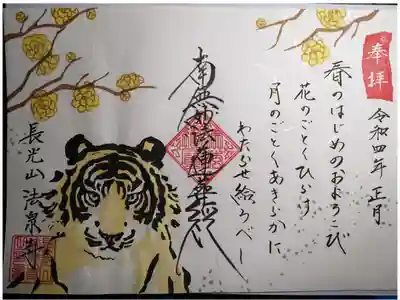 奉拝
令和四年 正月
春のはじめのおよろこび
花のごとくひらす
月のごとくあきらかに
わたらせ給うべし
南無妙法蓮華経
長光山 法泉寺